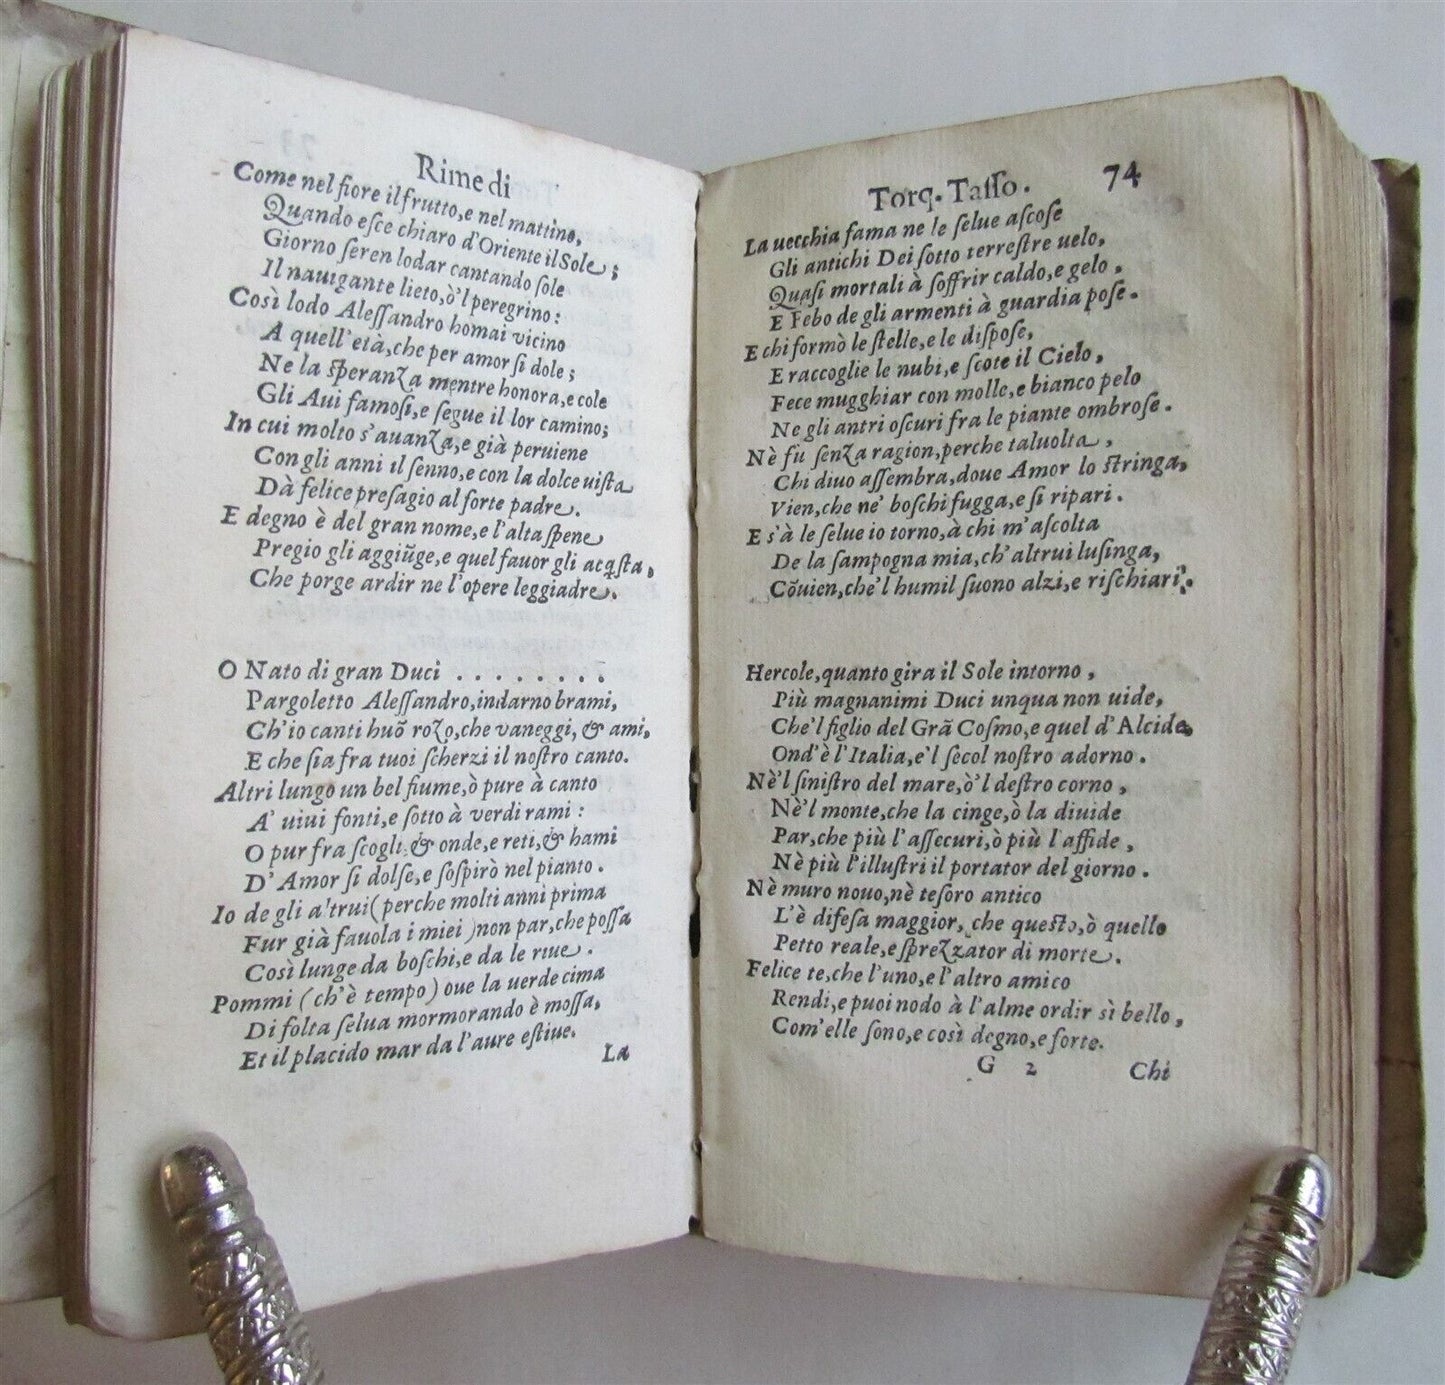 Rime di
Come nel fiore il frutto,e nel mattino,
Quando eſce chiaro d'Oriente il Sole;
Giorno ſeren lodar cantando ſole
Il nauigante lieto,ò'l peregrino:
Così lodo Aleſſandro homai vicino
A quell'età,che per amor ſi dole;
Ne la ſperanza mentre honora,e cole
Gli Aui famoſi,e ſegue il lor camino;
In cui molto s'auanza,e già peruiene
Con gli anni il ſenno,e con la dolce uiſta
Dà felice preſagio al forte padre.
E degno è del gran nome,e l'alta ſpene
Pregio gli aggiũge,e quel fauor gli acq̃ſta,
Che porge ardir ne l'opere leggiadre.
O Nato di gran Duci . . . . . . . .
Pargoletto Aleſſandro,indarno brami,
Ch'io canti huõ rozo,che vaneggi, & ami,
E che ſia fra tuoi ſcherzi il noſtro canto.
Altri lungo un bel fiume,ò pure à canto
A' uiui fonti,e ſotto à verdi rami:
O pur fra ſcogli & onde,e reti,& hami
D'Amor ſi dolſe,e ſoſpirò nel pianto.
Io de gli a'trui(perche molti anni prima
Fur già fauola i miei)non par,che poſſa
Così lunge da boſchi,e da le riue.
Pommi (ch'è tempo) oue la uerde cima
Di folta ſelua mormorando è moſſa,
Et il placido mar da l'aure eſtiue.
La
Torq. Taſſo. 74
La uecchia fama ne le ſelue aſcoſe
Gli antichi Dei ſotto terreſtre uelo,
Quaſi mortali à ſoffrir caldo,e gelo,
E Febo de gli armenti à guardia poſe.
E chi formò le ſtelle,e le diſpoſe,
E raccoglie le nubi,e ſcote il Cielo,
Fece mugghiar con molle,e bianco pelo
Ne gli antri oſcuri fra le piante ombroſe.
Nè fù ſenza ragion,perche taluolta,
Chi diuo aſſembra,doue Amor lo ſtringa,
Vien,che ne' boſchi fugga,e ſi ripari.
E s'à le ſelue io torno,à chi m'aſcolta
De la ſampogna mia,ch'altrui luſinga,
Cõuien,che'l humil ſuono alzi,e riſchiari.
Hercole,quanto gira il Sole intorno,
Più magnanimi Duci unqua non uide,
Che'l figlio del Grã Coſmo,e quel d'Alcide,
Ond'è l'Italia,e'l ſecol noſtro adorno.
Nè'l ſiniſtro del mare,ò'l deſtro corno,
Nè'l monte,che la cinge,ò la diuide
Par,che più l'aſſecuri,ò più l'affide,
Nè più l'illuſtri il portator del giorno.
Nè muro nouo,nè teſoro antico
L'è difeſa maggior, che queſto,ò quello
Petto reale,e ſprezzator di morte.
Felice te,che l'uno,e l'altro amico
Rendi,e puoi nodo à l'alme ordir sì bello,
Com'elle ſono,e così degno,e forte.
G 2 Chi